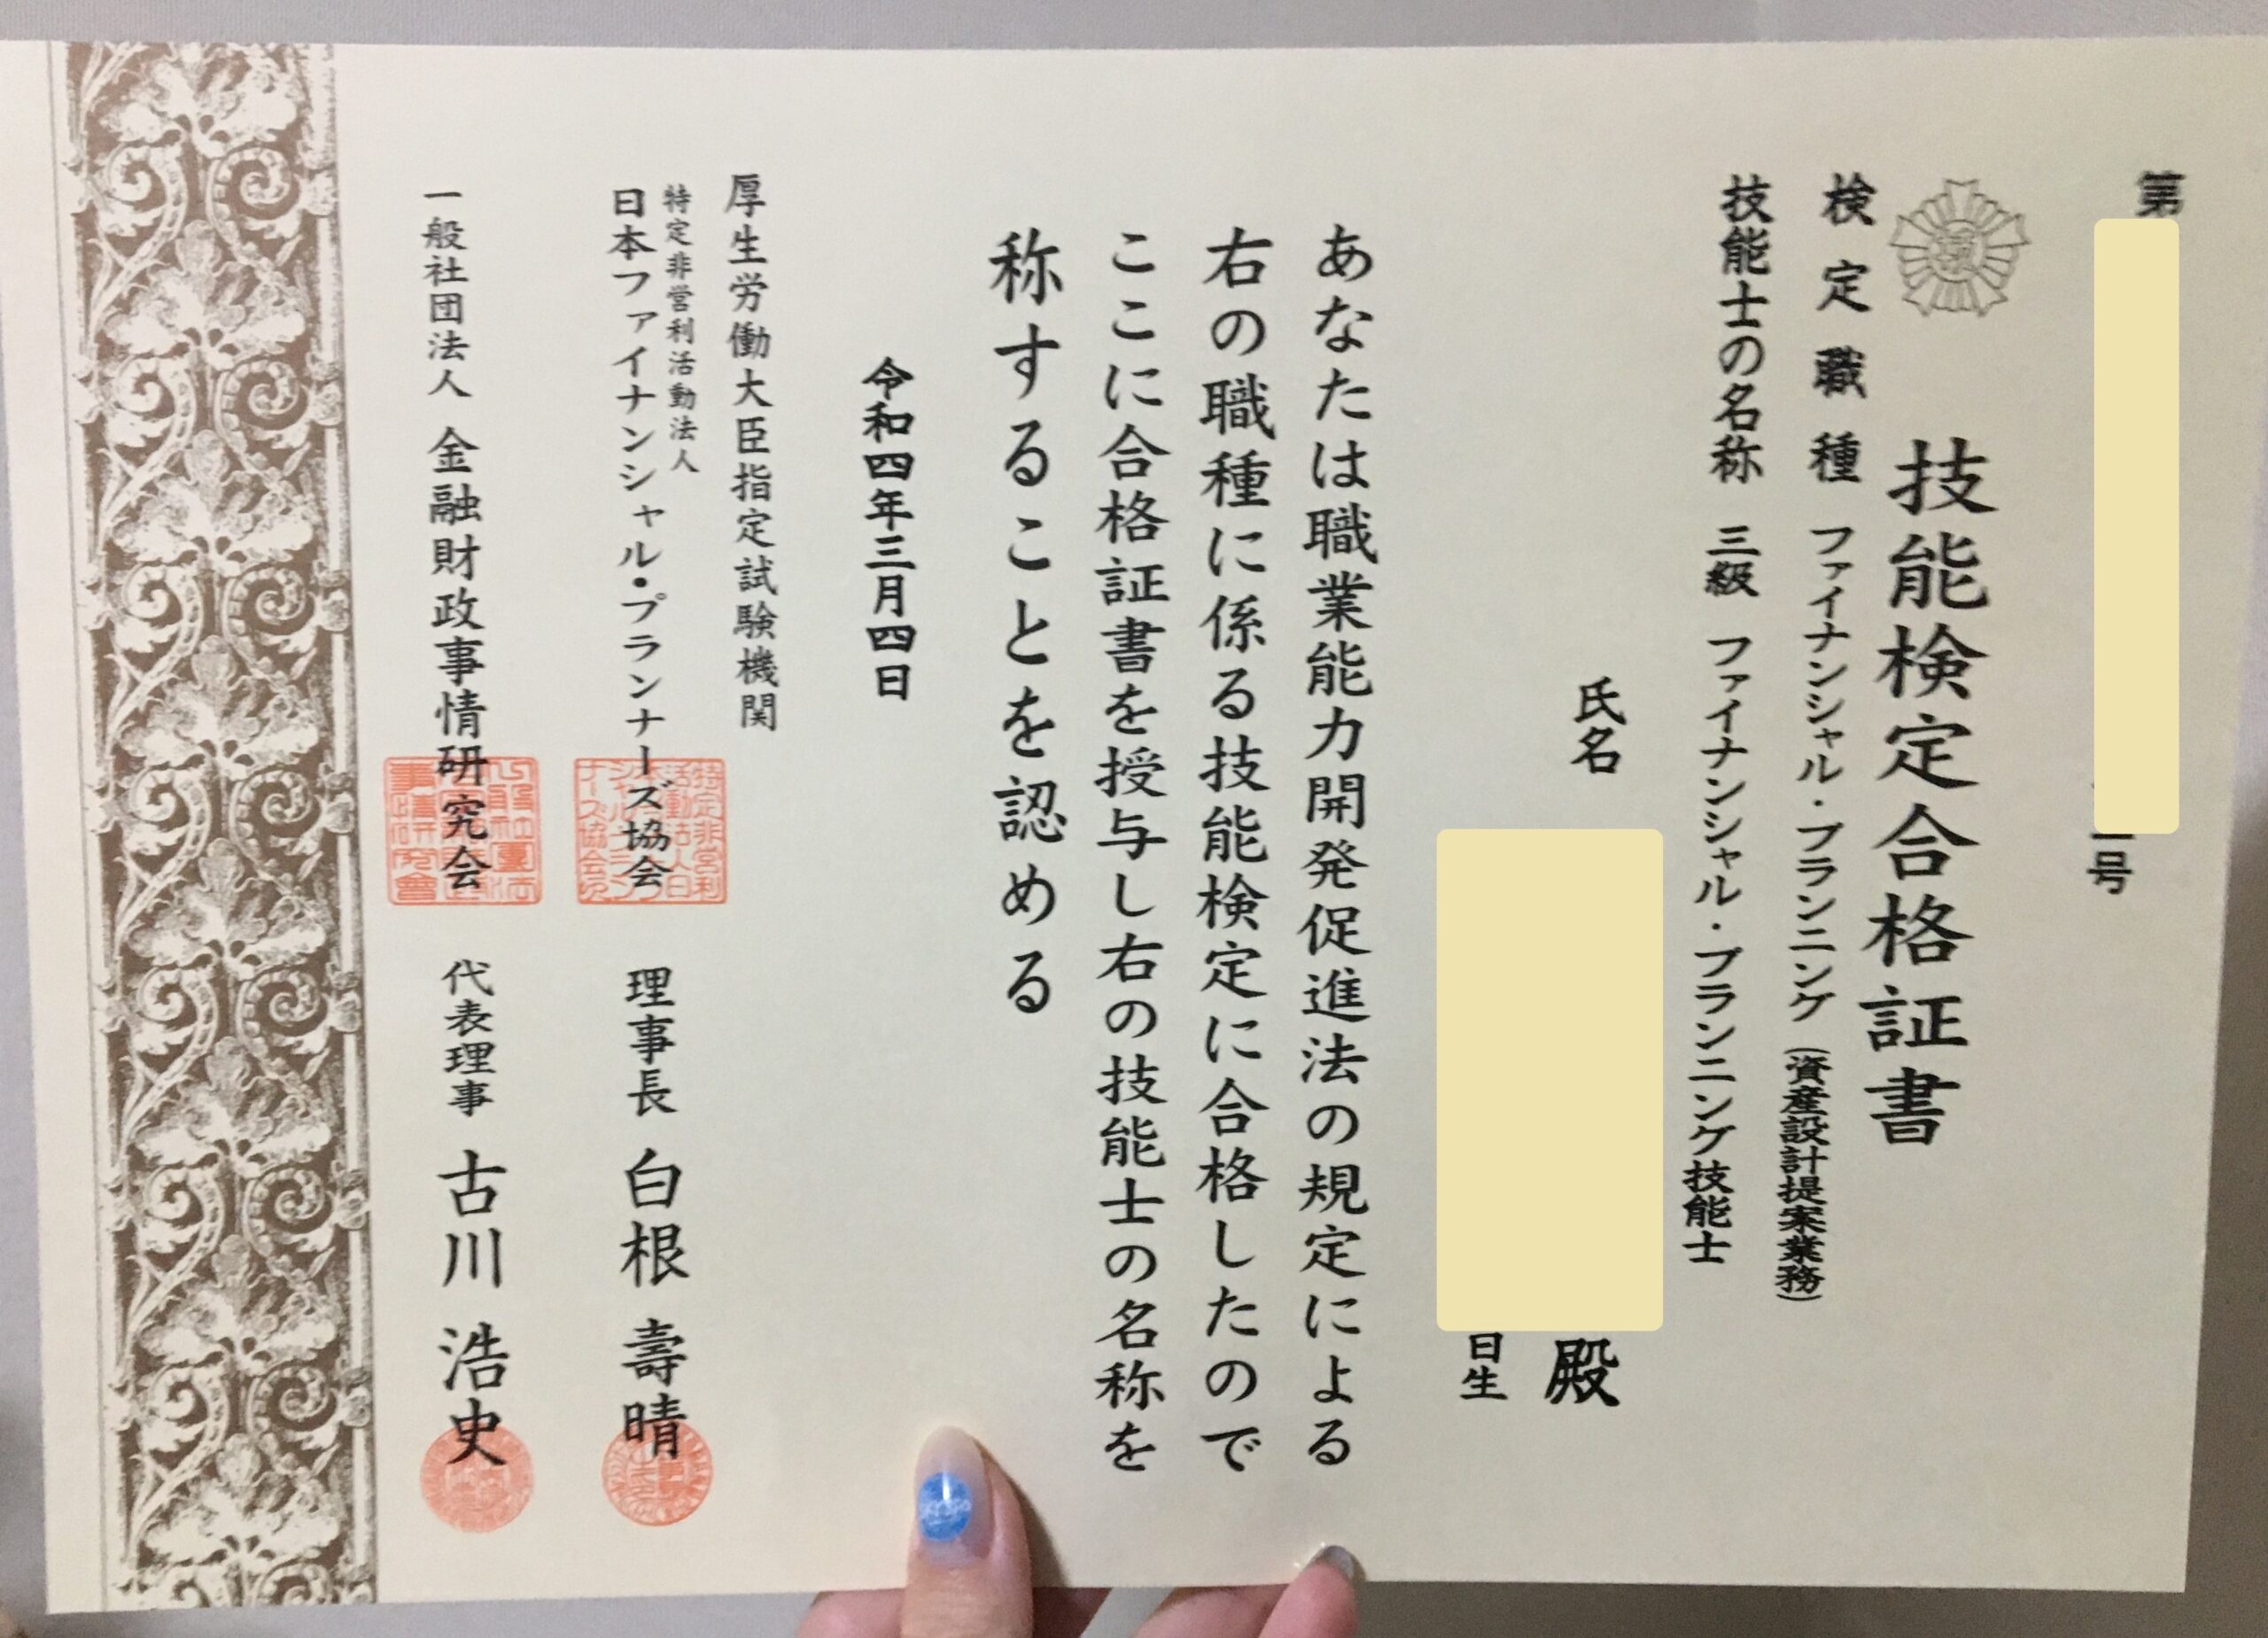 第
号
技能検定合格証書
検定職種 ファイナンシャル・プランニング(資産設計提案業務)
技能士の名称 三級 ファイナンシャル・プランニング技能士
氏名
殿
日生
あなたは職業能力開発促進法の規定による
右の職種に係る技能検定に合格したので
ここに合格証書を授与し右の技能士の名称を
称することを認める
令和四年三月四日
厚生労働大臣指定試験機関
特定非営利活動法人
日本ファイナンシャル・プランナーズ協会 理事長 白根 壽晴
一般社団法人 金融財政事情研究会 代表理事 古川 浩史